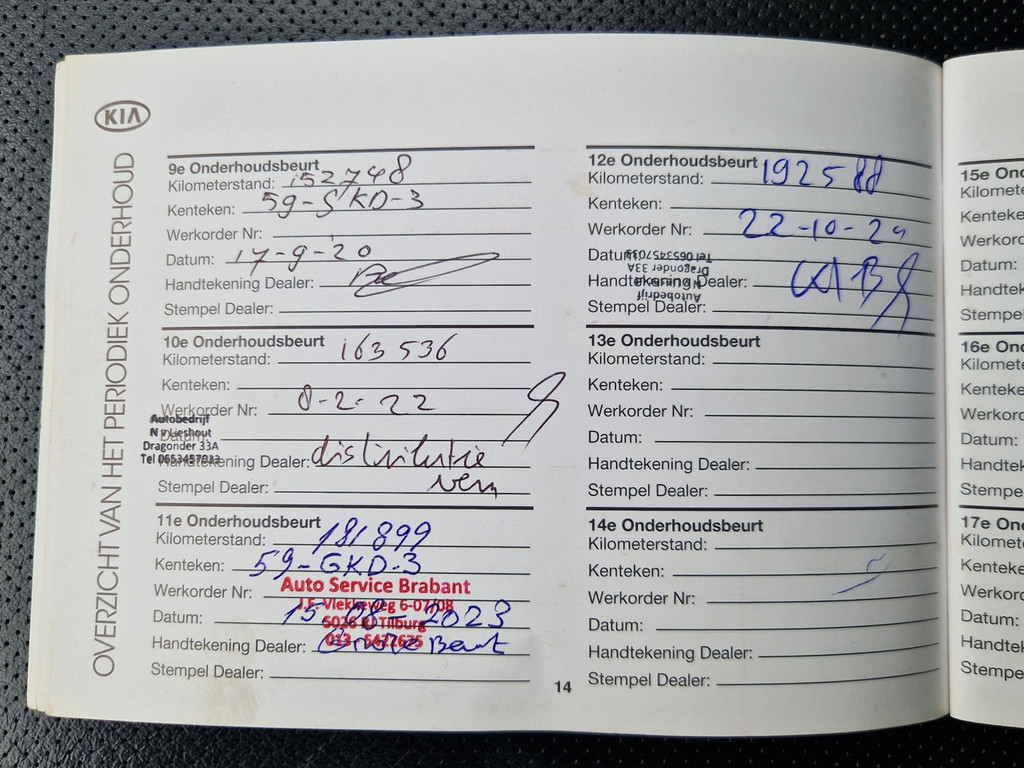 KIA
OVERZICHT VAN HET PERIODIEK ONDERHOUD
9e Onderhoudsbeurt
Kilometerstand: 152748
Kenteken: 59-GKD-3
Werkorder Nr:
Datum: 17-9-20
Handtekening Dealer:
Stempel Dealer:
10e Onderhoudsbeurt
Kilometerstand: 163536
Kenteken:
Werkorder Nr: 8-2-22
Autobedrijf
N v Lieshout
Datum:
Dragonder 33A
Tel 0653457033
Handtekening Dealer: distributie
Stempel Dealer: vern
11e Onderhoudsbeurt
Kilometerstand: 181899
Kenteken: 59-GKD-3
Werkorder Nr:
Auto Service Brabant
J.F. Vlekkeweg 6-07/08
Datum: 15-08-2023
Tilburg
013 - 5422635
Handtekening Dealer: Grote Beurt
Stempel Dealer:
12e Onderhoudsbeurt
Kilometerstand: 192588
Kenteken:
Werkorder Nr: 22-10-24
Datum:
Tel 0653457033
Dragonder 33A
Handtekening Dealer:
N v Lieshout
Autobedrijf
Stempel Dealer:
13e Onderhoudsbeurt
Kilometerstand:
Kenteken:
Werkorder Nr:
Datum:
Handtekening Dealer:
Stempel Dealer:
14e Onderhoudsbeurt
Kilometerstand:
Kenteken:
Werkorder Nr:
Datum:
Handtekening Dealer:
Stempel Dealer:
14
15e Ond
Kilomete
Kenteke
Werkorc
Datum:
Handtek
Stempe
16e On
Kilomet
Kenteke
Werkorc
Datum:
Handtek
Stempe
17e On
Kilomet
Kenteke
Werkorc
Datum:
Handte
Stempe